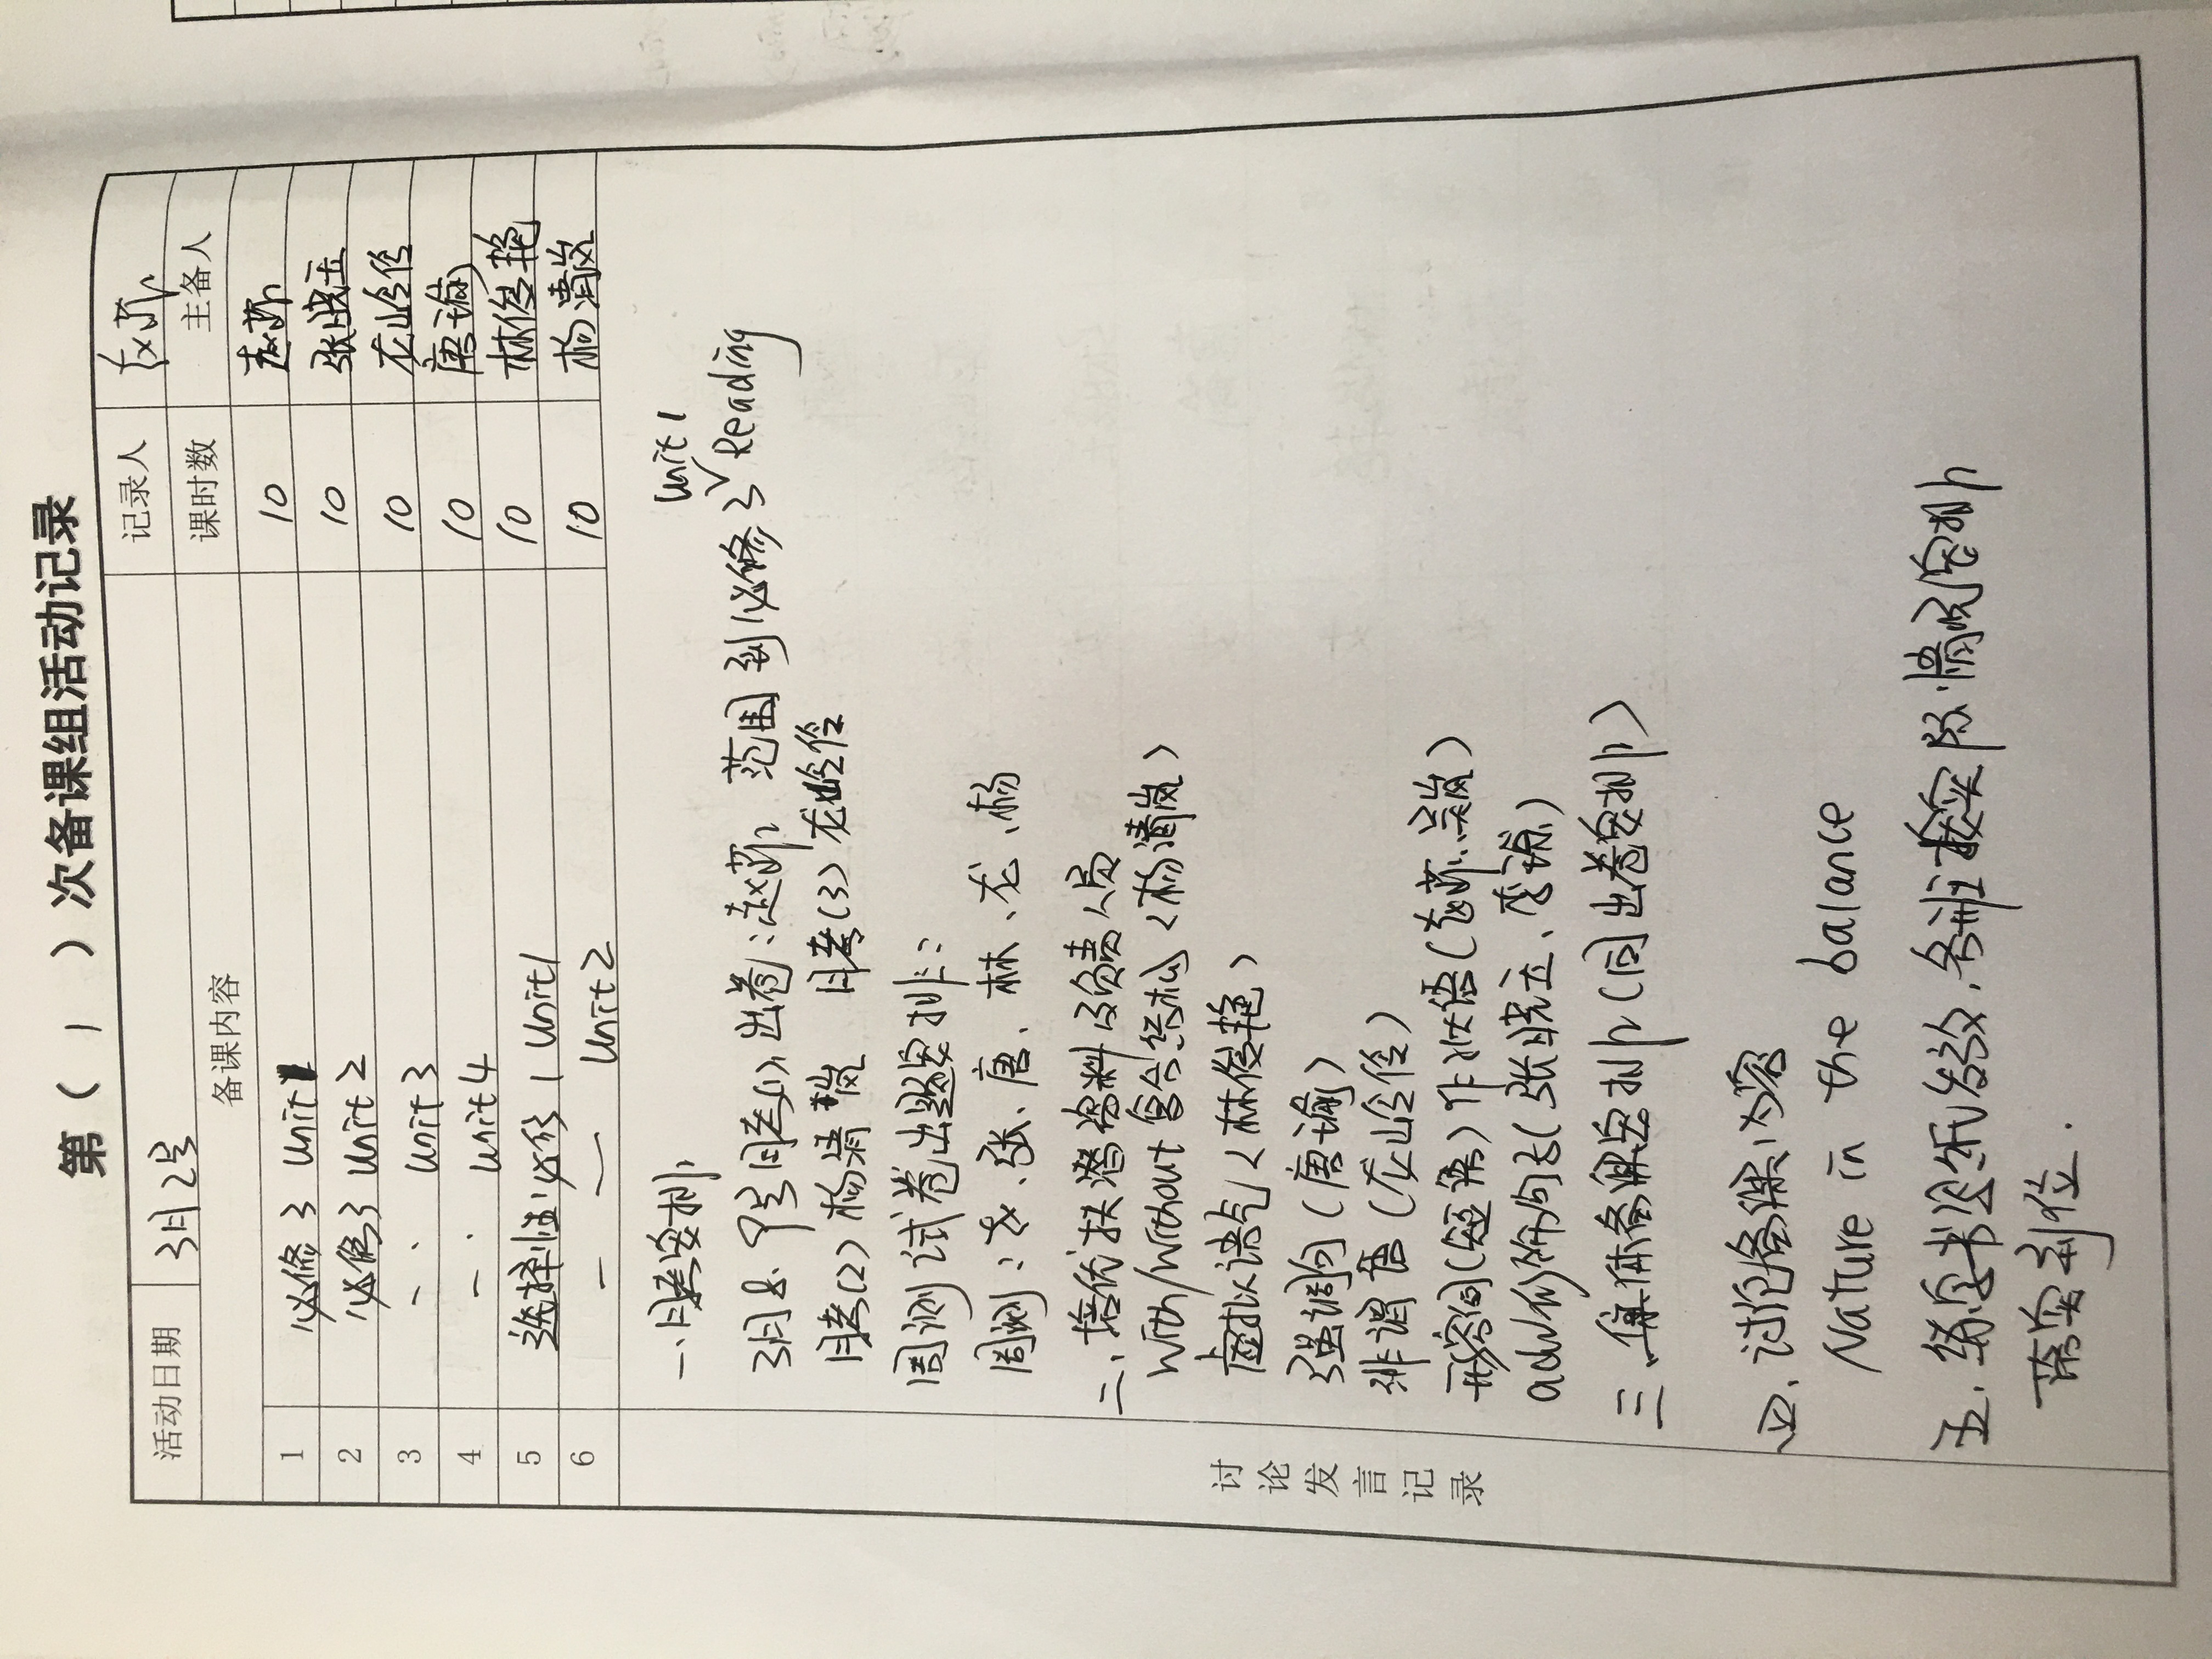 第（ 1 ）次备课组活动记录
活动日期 3月2号 记录人
备课内容 课时数 主备人
1 必修3 Unit1 10 赵娜
2 必修3 Unit2 10 张晓立
3 - - Unit3 10 龙岭伶
4 - - Unit4 10 唐瑜
5 选择性必修1 Unit1 10 林俊艳
6 - - Unit2 10 杨清岚
讨论发言记录
一、月考安排
3月8、9号月考(1)出卷:赵娜 范围到必修3 Unit1 Reading
月考(2) 杨清岚 月考(3) 龙岭伶
周测试卷出题安排:
周测: 、张、唐、林、龙、杨
二、培优扶潜资料及负责人员
with/without 复合结构(杨清岚)
虚拟语气(林俊艳)
强调句(唐瑜)
非谓语(龙岭伶)
形容词(短语)作状语(赵娜、吴岚)
三、集体备课安排(同出卷安排)
四、讨论备课内容
Nature in the balance
五、练习书及纸发放,各班按实际情况安排
落实到位.